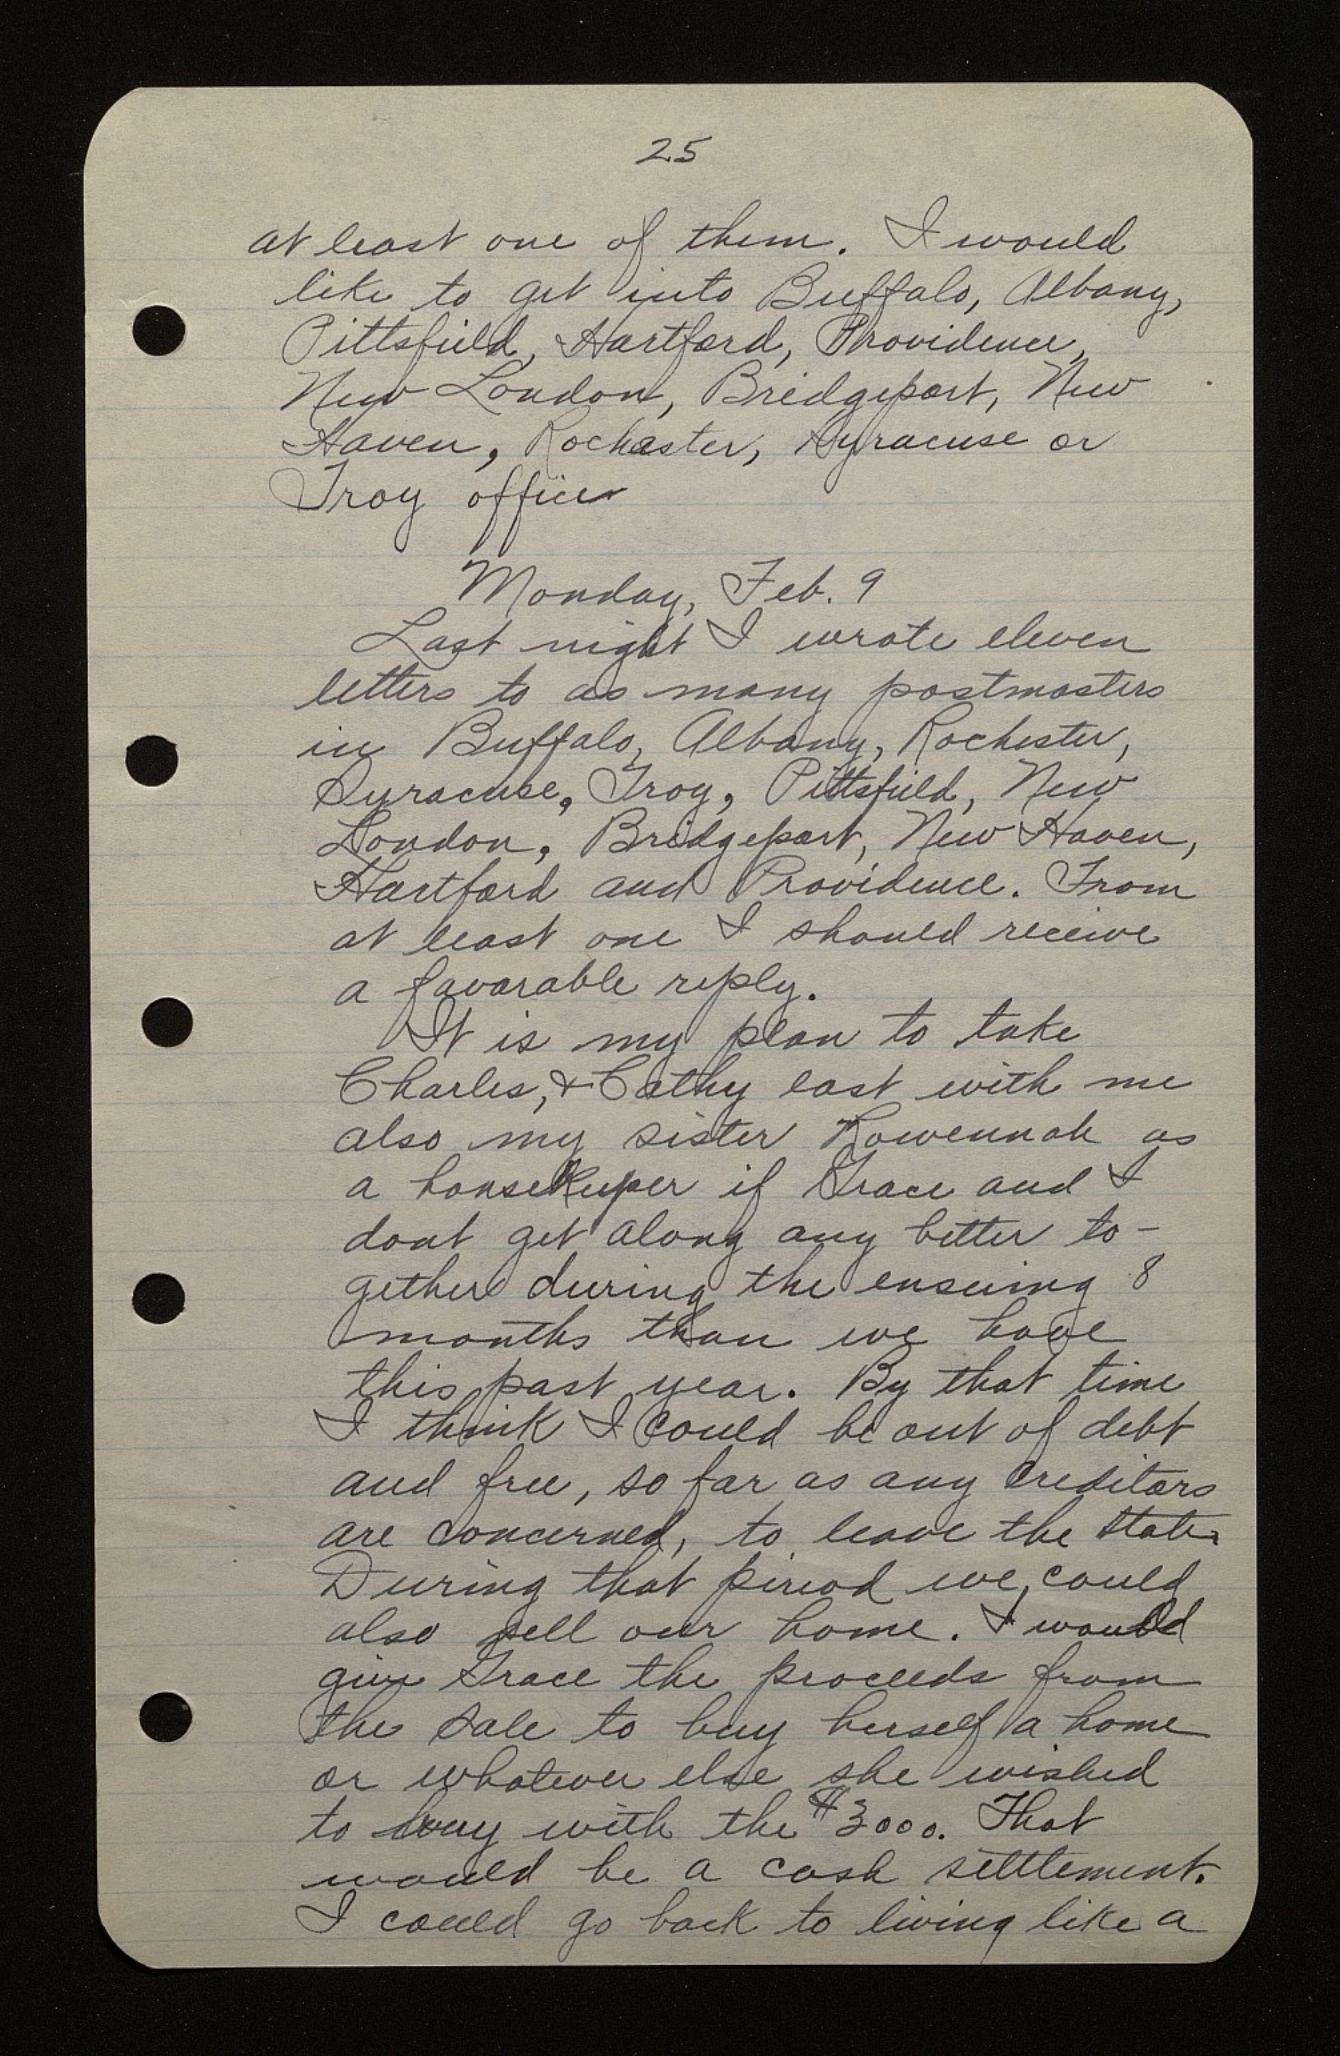 25
at least one of them. I would
like to get into Buffalo, Albany,
Pittsfield, Hartford, Providence,
New London, Bridgeport, New
Haven, Rochester, Syracuse or
Troy offices
Monday, Feb. 9
Last night I wrote eleven
letters to as many postmasters
in Buffalo, Albany, Rochester,
Syracuse, Troy, Pittsfield, New
London, Bridgeport, New Haven,
Hartford and Providence. From
at least one I should receive
a favorable reply.
It is my plan to take
Charles, & Cathy east with me
also my sister Rowennah as
a housekeeper if Grace and I
dont get along any better to-
gether during the ensuing 8
months than we have
this past year. By that time
I think I could be out of debt
and free, so far as any creditors
are concerned, to leave the state.
During that period we could
also sell our home. I would
give Grace the proceeds from
the sale to buy herself a home
or whatever else she wished
to buy with the $3000. That
would be a cash settlement.
I could go back to living like a